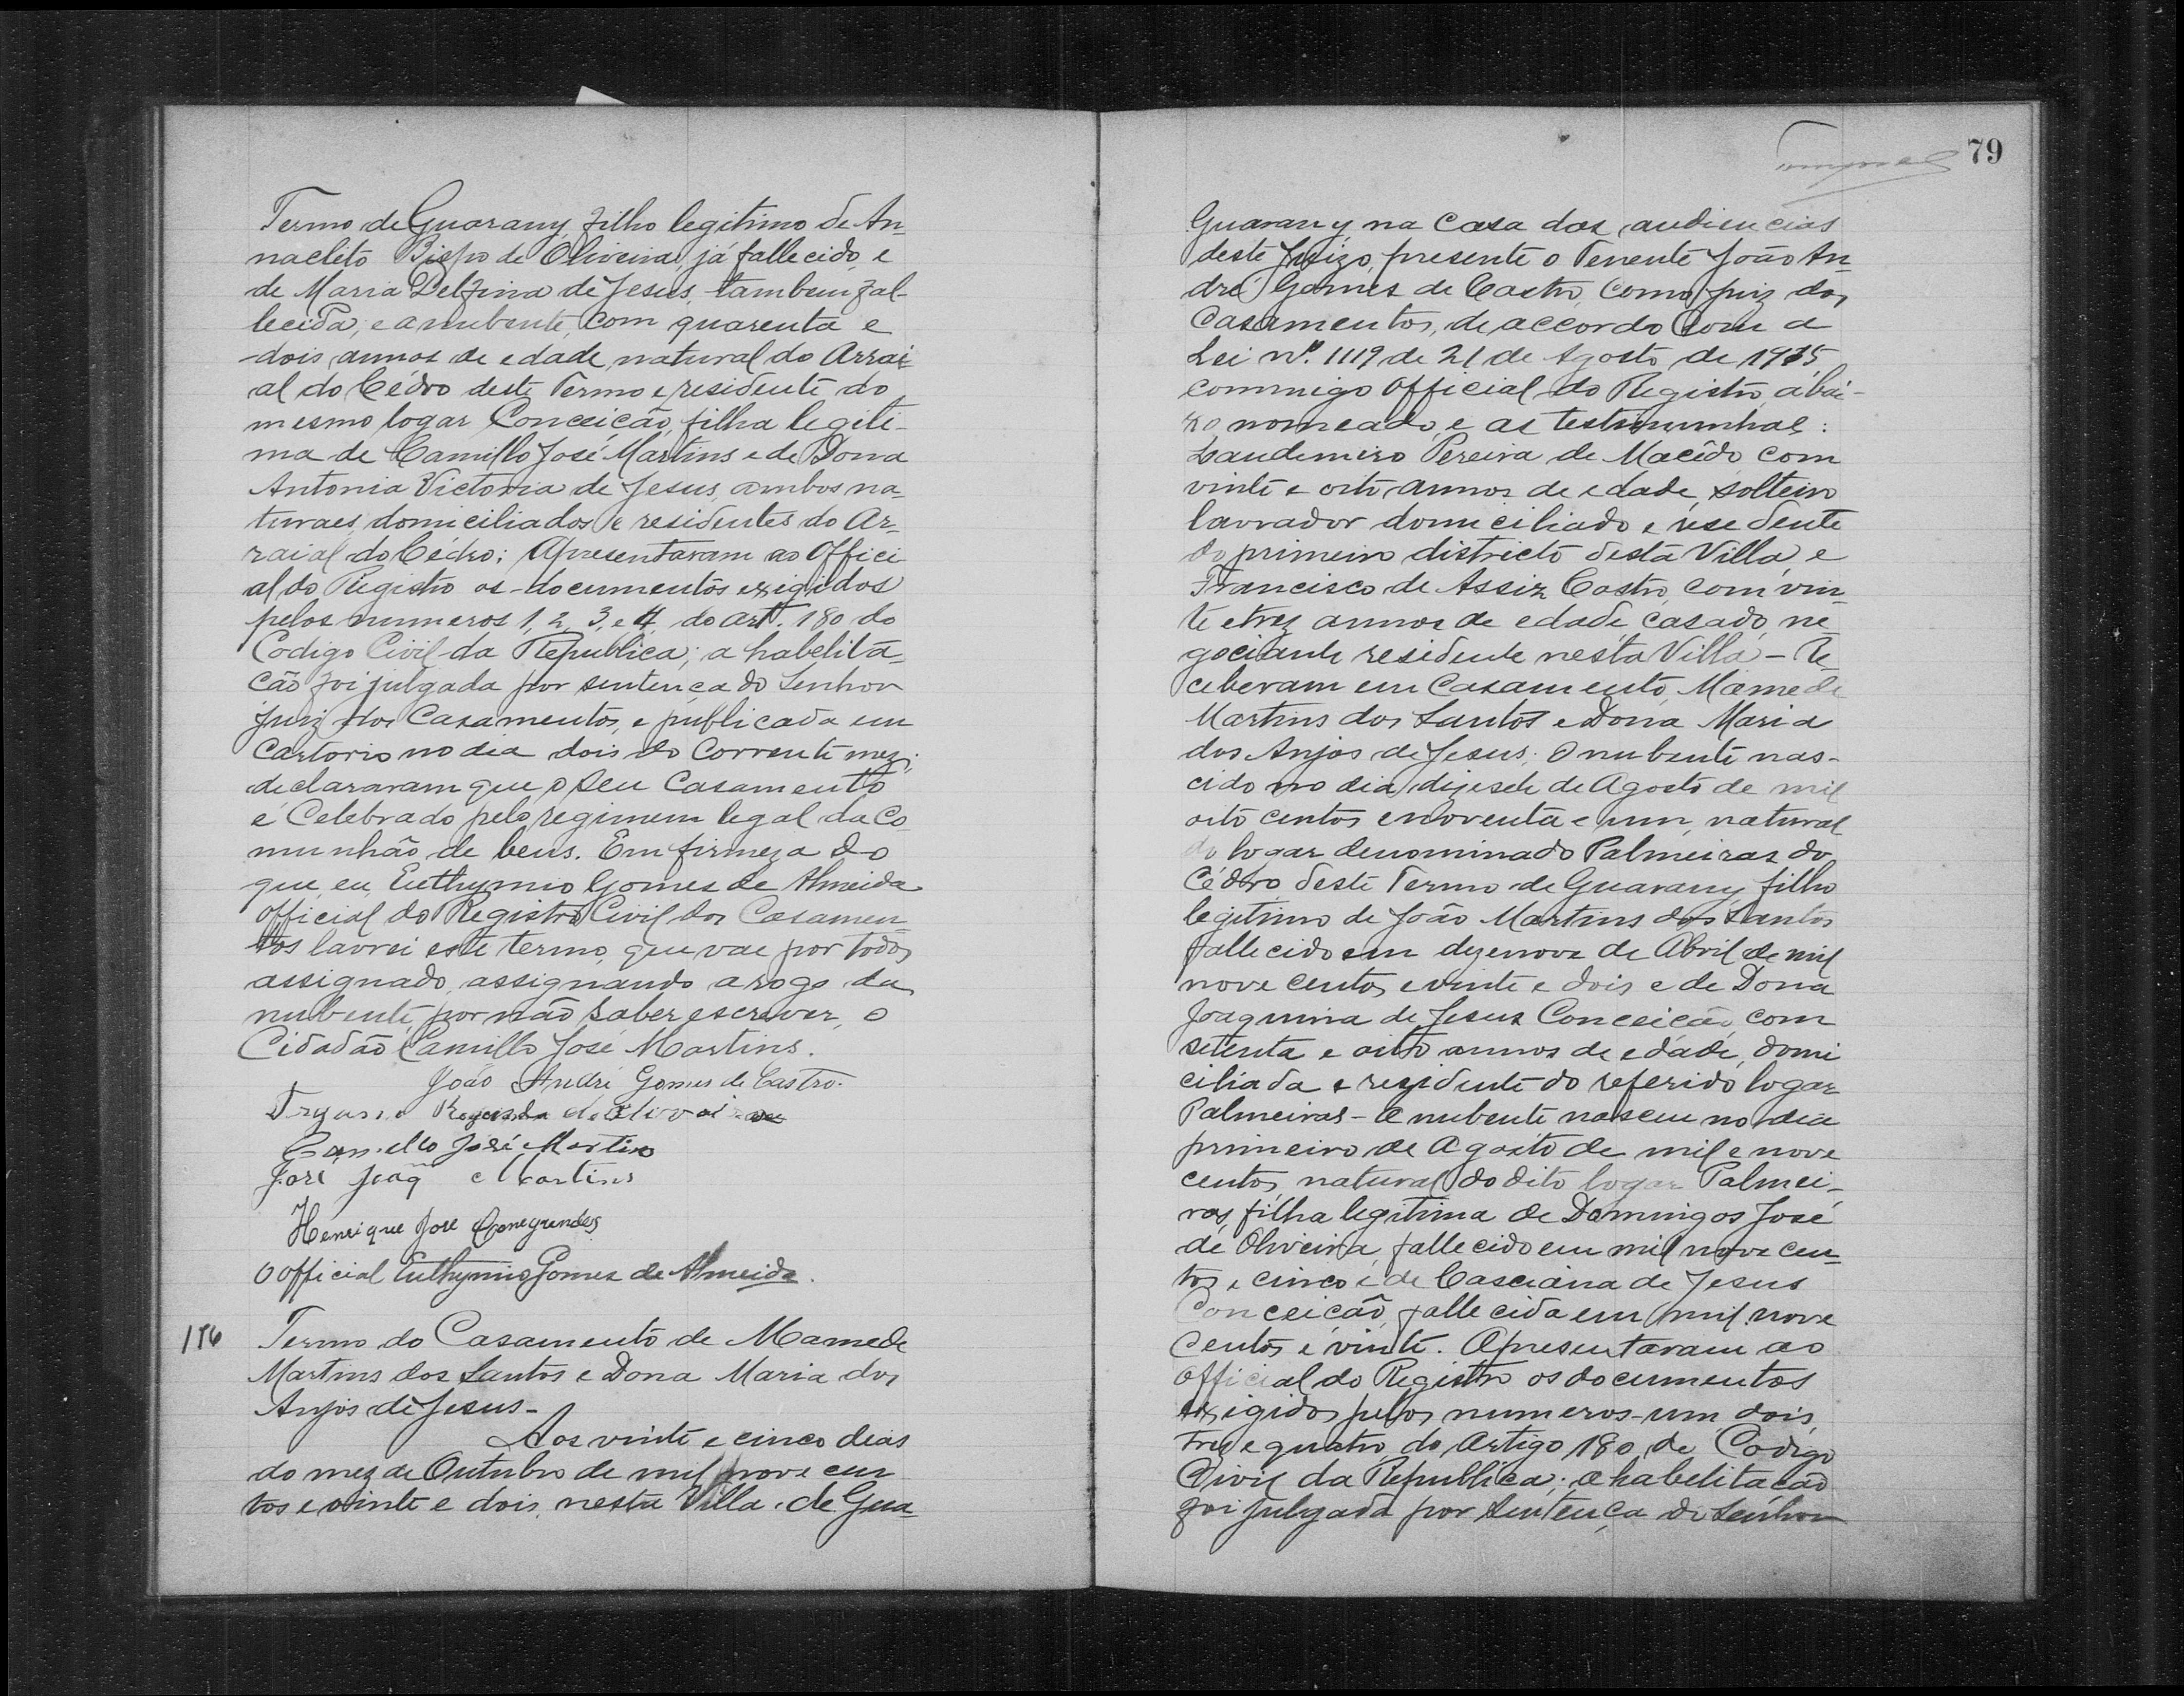 Termo de Guarany, filho legitimo de An-
nacleto Bispo de Oliveira, já fallecido, e
de Maria Delfina de Jesus, tambem fal-
lecida, e a nubente, com quarenta e
dois annos de edade, natural do Arrai-
al do Cédro deste Termo e residente do
mesmo logar Conceicão, filha legiti-
ma de Camillo José Martins e de Dona
Antonia Victoria de Jesus, ambos na-
turaes, domiciliados e residentes do Ar-
raial do Cédro: Apresentaram ao Offici-
al do Registro os documentos exigidos
pelos numeros 1, 2, 3, e 4, do artº. 180 do
Codigo Civil da Republica; a habelita-
cão foi julgada por sentença do Senhor
Juiz dos Casamentos, e publicada em
Cartorio no dia dois do Corrente mez;
declararam que o seu Casamento
é Celebrado pelo regimem legal da Co-
munhão de bens. Em firmeza do
que, eu, Euthymio Gomes de Almeida
Official do Registro Civil dos Casamen-
tos lavrei este termo, que vae por todos
assignado, assignando a rogo da
nubente, por não saber escrever, o
Cidadão Camillo José Martins.
João André Gomes de Castro.
de Oliveira
Camillo José Martins
José Joaq Martins
Henrique José
O official Euthymio Gomes de Almeida.
Termo do Casamento de Mamede
Martins dos Santos e Dona Maria dos
Anjos de Jesus-
Aos vinte e cinco dias
do mez de Outubro de mil nove cen
tos e vinte e dois, nesta Villa de Gua-
79
Guarany, na Casa das audiencias
deste Juizo, presente o Tenente João An-
dré Gomes de Castro, como Juiz dos
Casamentos, de accordo Com a
Lei Nº. 1119 de 21 de Agosto de 1915,
commigo Official do Registro, abai-
xo nomeado, e as testimunhas:
Laudemiro Pereira de Macêdo, com
vinte e oito annos de edade, solteiro
lavrador domiciliado e residente
do primeiro districto desta Villa, e
Francisco de Assiz Castro, com vin-
te e trez annos de edade, casado, ne-
gociante residente nesta Villa - Re
ceberam em Casamento, Mamede
Martins dos Santos e Dona Maria
dos Anjos de Jesus; O nubente nas-
cido no dia dizesete de Agosto de mil
oito centos e noventa e um, natural
do logar denominado Palmeiras do
Cédro deste Termo de Guarany, filho
legitimo de João Martins dos Santos
fallecido em dezenove de Abril de mil
nove centos e vinte e dois e de Dona
Joaquina de Jesus Conceicão, com
setenta e oito annos de edade, domi
ciliada e residente do referido logar
Palmeiras - A nubente nasceu no dia
primeiro de Agosto de mil e nove
centos, natural do dito logar Palmei-
ras, filha legitima de Domingos José
de Oliveira, fallecido em mil nove cen-
tos e cinco e de Casciana de Jesus
Conceicão, fallecida em mil nove
centos e vinte. Apresentaram ao
Official do Registro os documentos
exigidos pelos numeros um dois,
trez e quatro, do Artigo 180, de Codigo
Civil da Republica; a habelitacão
foi julgada por sentença do Senhor